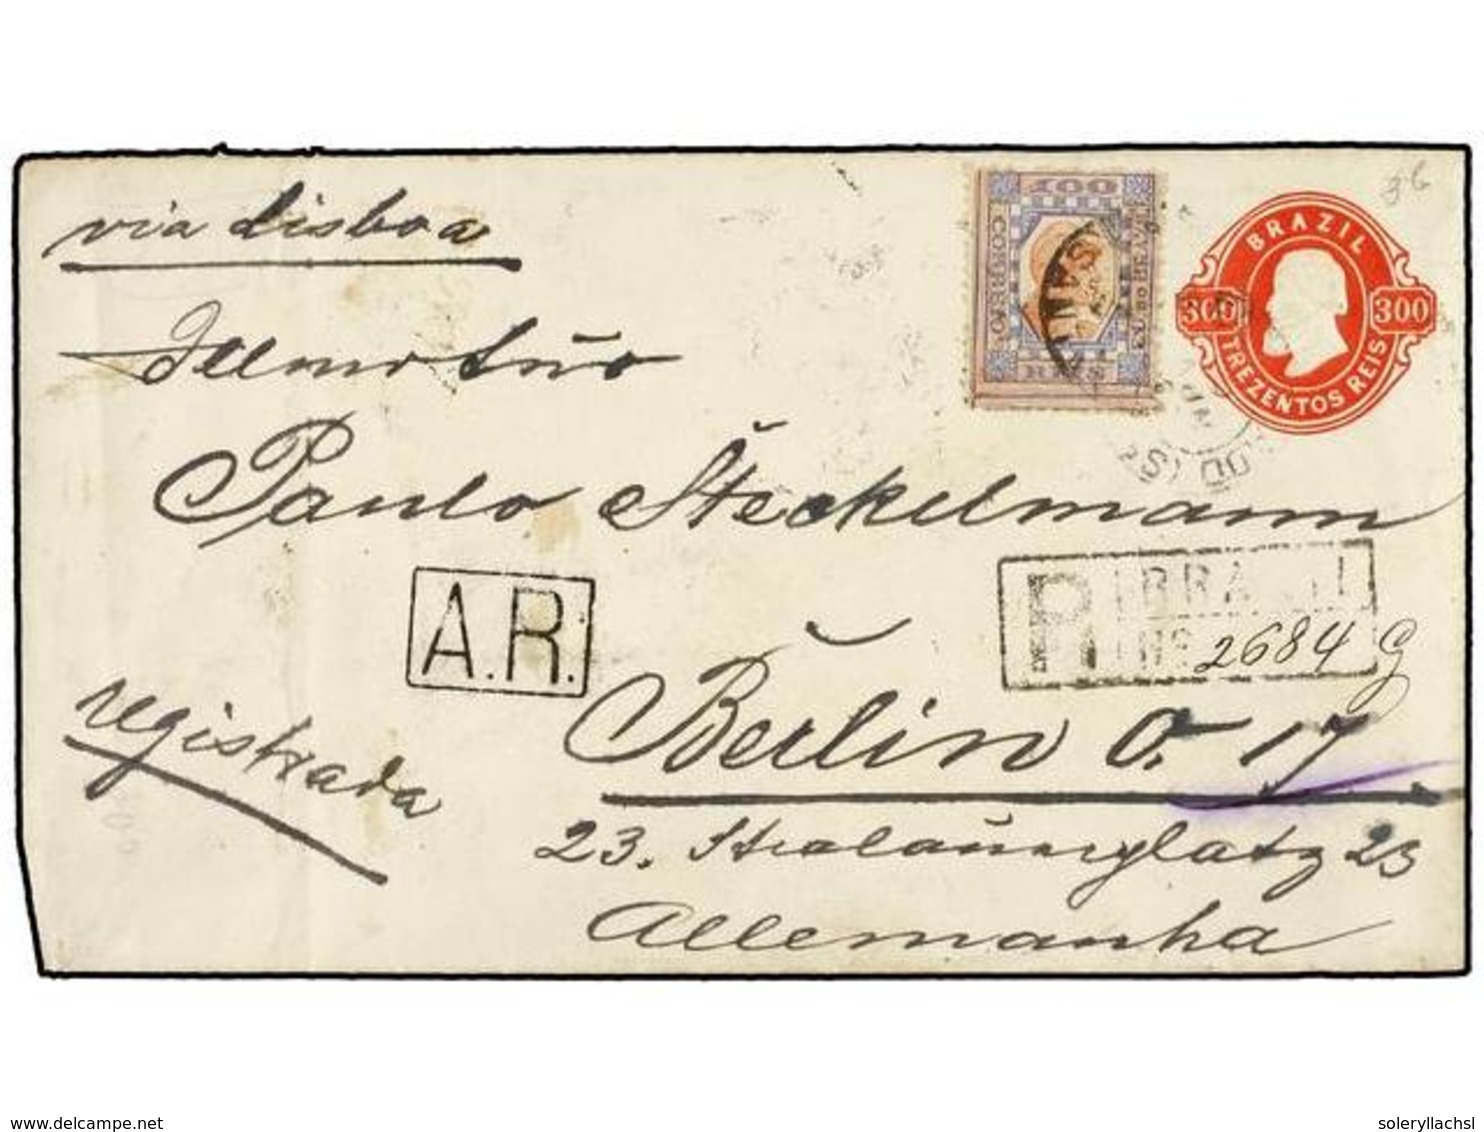 via Lisboa
100
CORREIO
REIS
BRAZIL
300 300
TREZENTOS REIS
Illmo Snr
Paulo Steckelmann
A.R.
R BRAZIL
Nº 2684 G
registrada
Berlin O. 17
23. Stralauerplatz 23
Allemanha
www.delcampe.net
soleryllachsl